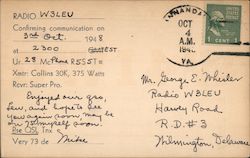 RADIO W3LEU
Confirming communication on
3rd Oct. 1948
at 2300
Ur 28 Mc Phone R5 S5 T=
Xmtr: Collins 30K, 375 Watts
Rcvr: Super Pro.
Enjoyed our qso,
hope to see
you again soon, may be
on 75 myself soon!
Pse QSL Tnx
Very 73 de Mike
ANNANDALE
OCT
4
A.M.
194
VA.
1 CENT 1
Mr. George E. Whisler
Radio W3BLEU
Harvey Road
R.D. #3
Wilmington, Delaware